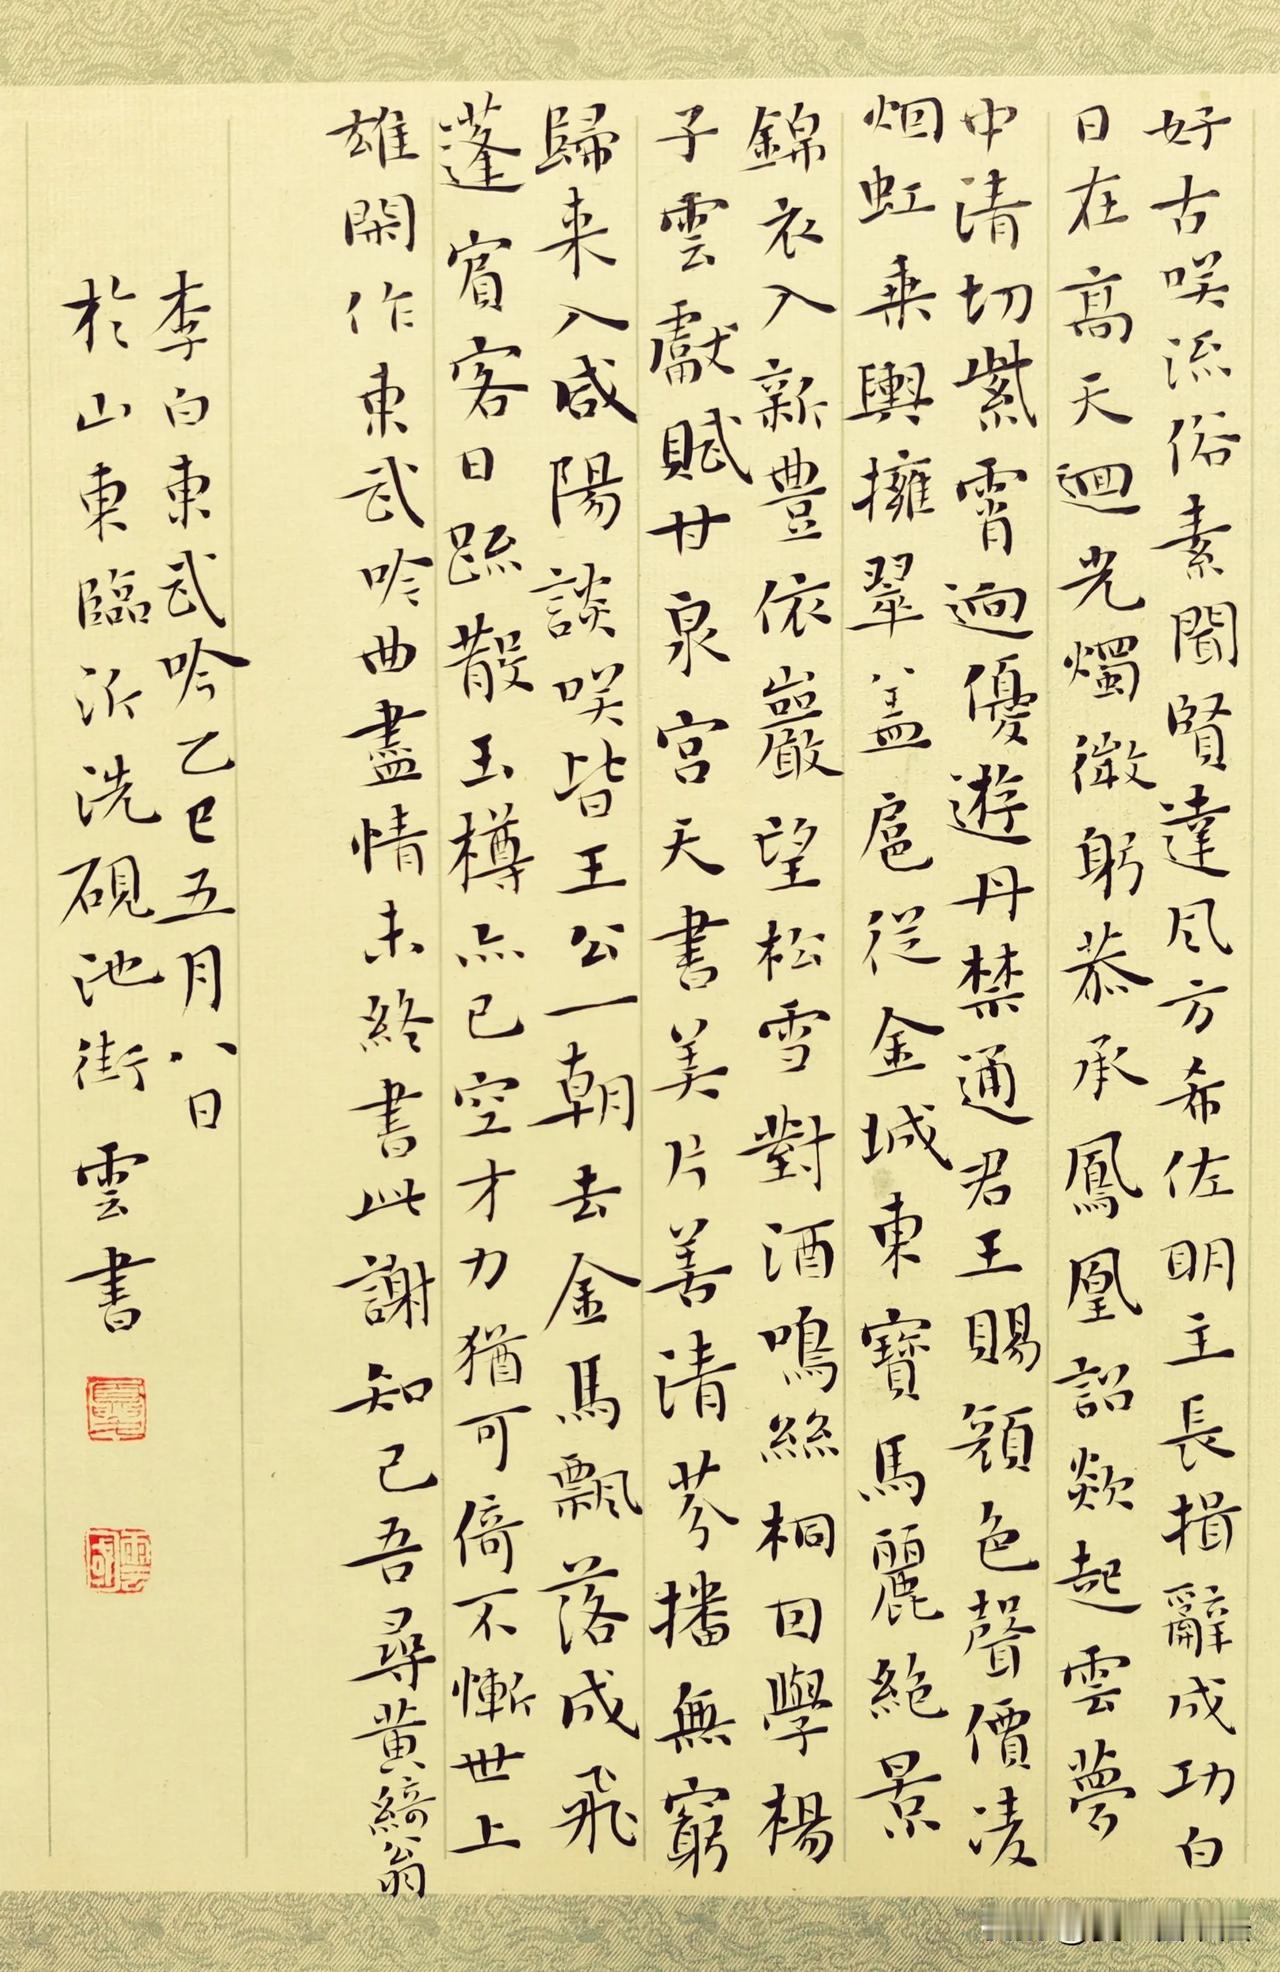 好古咲流俗素聞賢達風方希佐明主長揖辭成功白
日在高天迴光燭微躬恭承鳳凰詔欻起雲夢
中清切紫霄迥優遊丹禁通君王賜顏色聲價凌
烟虹乗輿擁翠盖扈從金城東寶馬麗絶景
錦衣入新豊依巖望松雪對酒鳴絲桐因學楊
子雲獻賦甘泉宮天書美片善清芬播無窮
歸来入咸陽談咲皆王公一朝去金馬飄落成飛
蓬賓客日踈散玉樽亦已空才力猶可倚不慚世上
雄閑作東武吟曲盡情未終書此謝知己吾尋黄綺翁
李白東武吟乙巳五月八日
於山東臨沂洗硯池街雲書